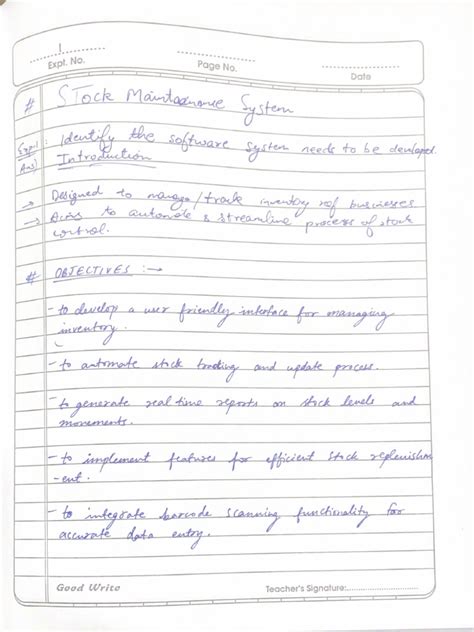 1
Expt. No.
Page No.
Date
# Stock Maintenance System
Exp-1: Identify the software system needs to be developed.
Ans) Introduction
→ Designed to manage/track inventory of businesses
→ Aims to automate & streamline process of stock
control.
# OBJECTIVES :→
- to develop a user friendly interface for managing
inventory.
- to automate stock tracking and update process.
- to generate real time reports on stock levels and
movements.
- to implement features for efficient stock replenishm
-ent.
- to integrate barcode scanning functionality for
accurate data entry.
Good Write
Teacher's Signature: